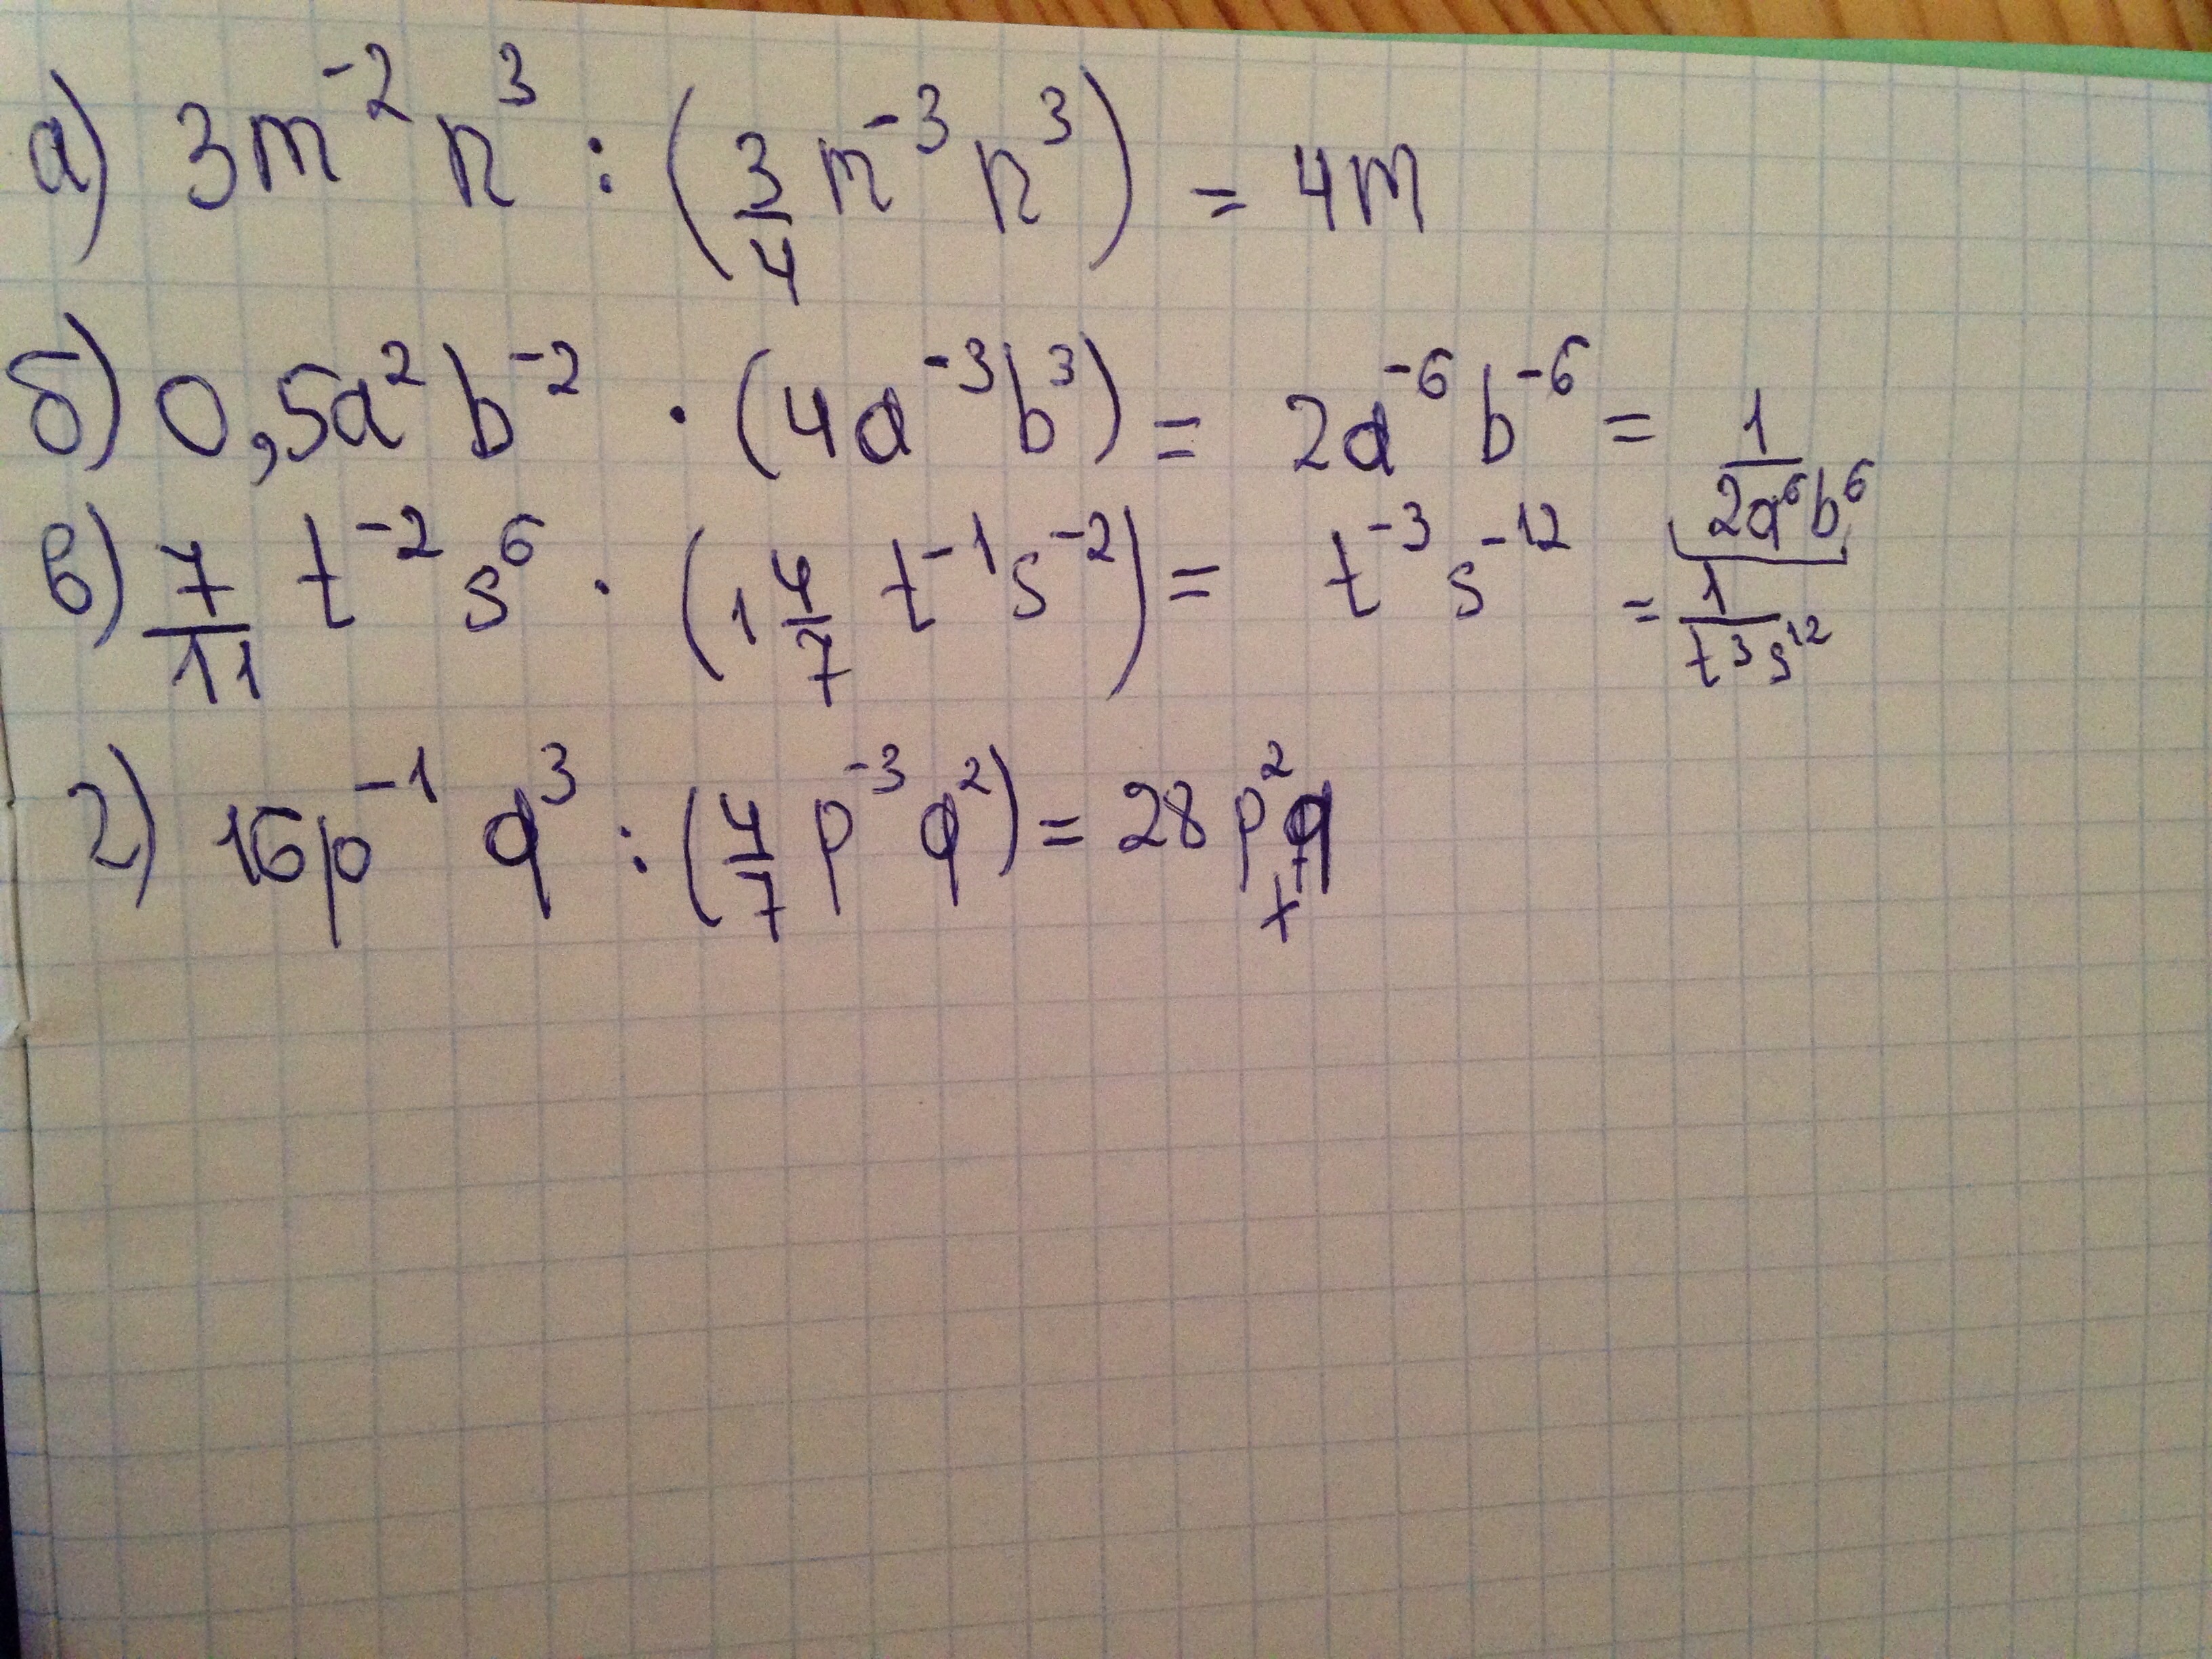 а) 3m⁻² n³ : (3/4 n⁻³ n³) = 4m
б) 0,5a² b⁻² · (4a⁻³b³) = 2a⁻⁶ b⁻⁶ = 1/2a⁶b⁶
в) 7/11 t⁻² s⁶ · (1 4/7 t⁻¹s⁻²) = t⁻³ s⁻¹² = 1/t³s¹²
г) 16p⁻¹ q³ : (4/7 p⁻³ q²) = 28p²q